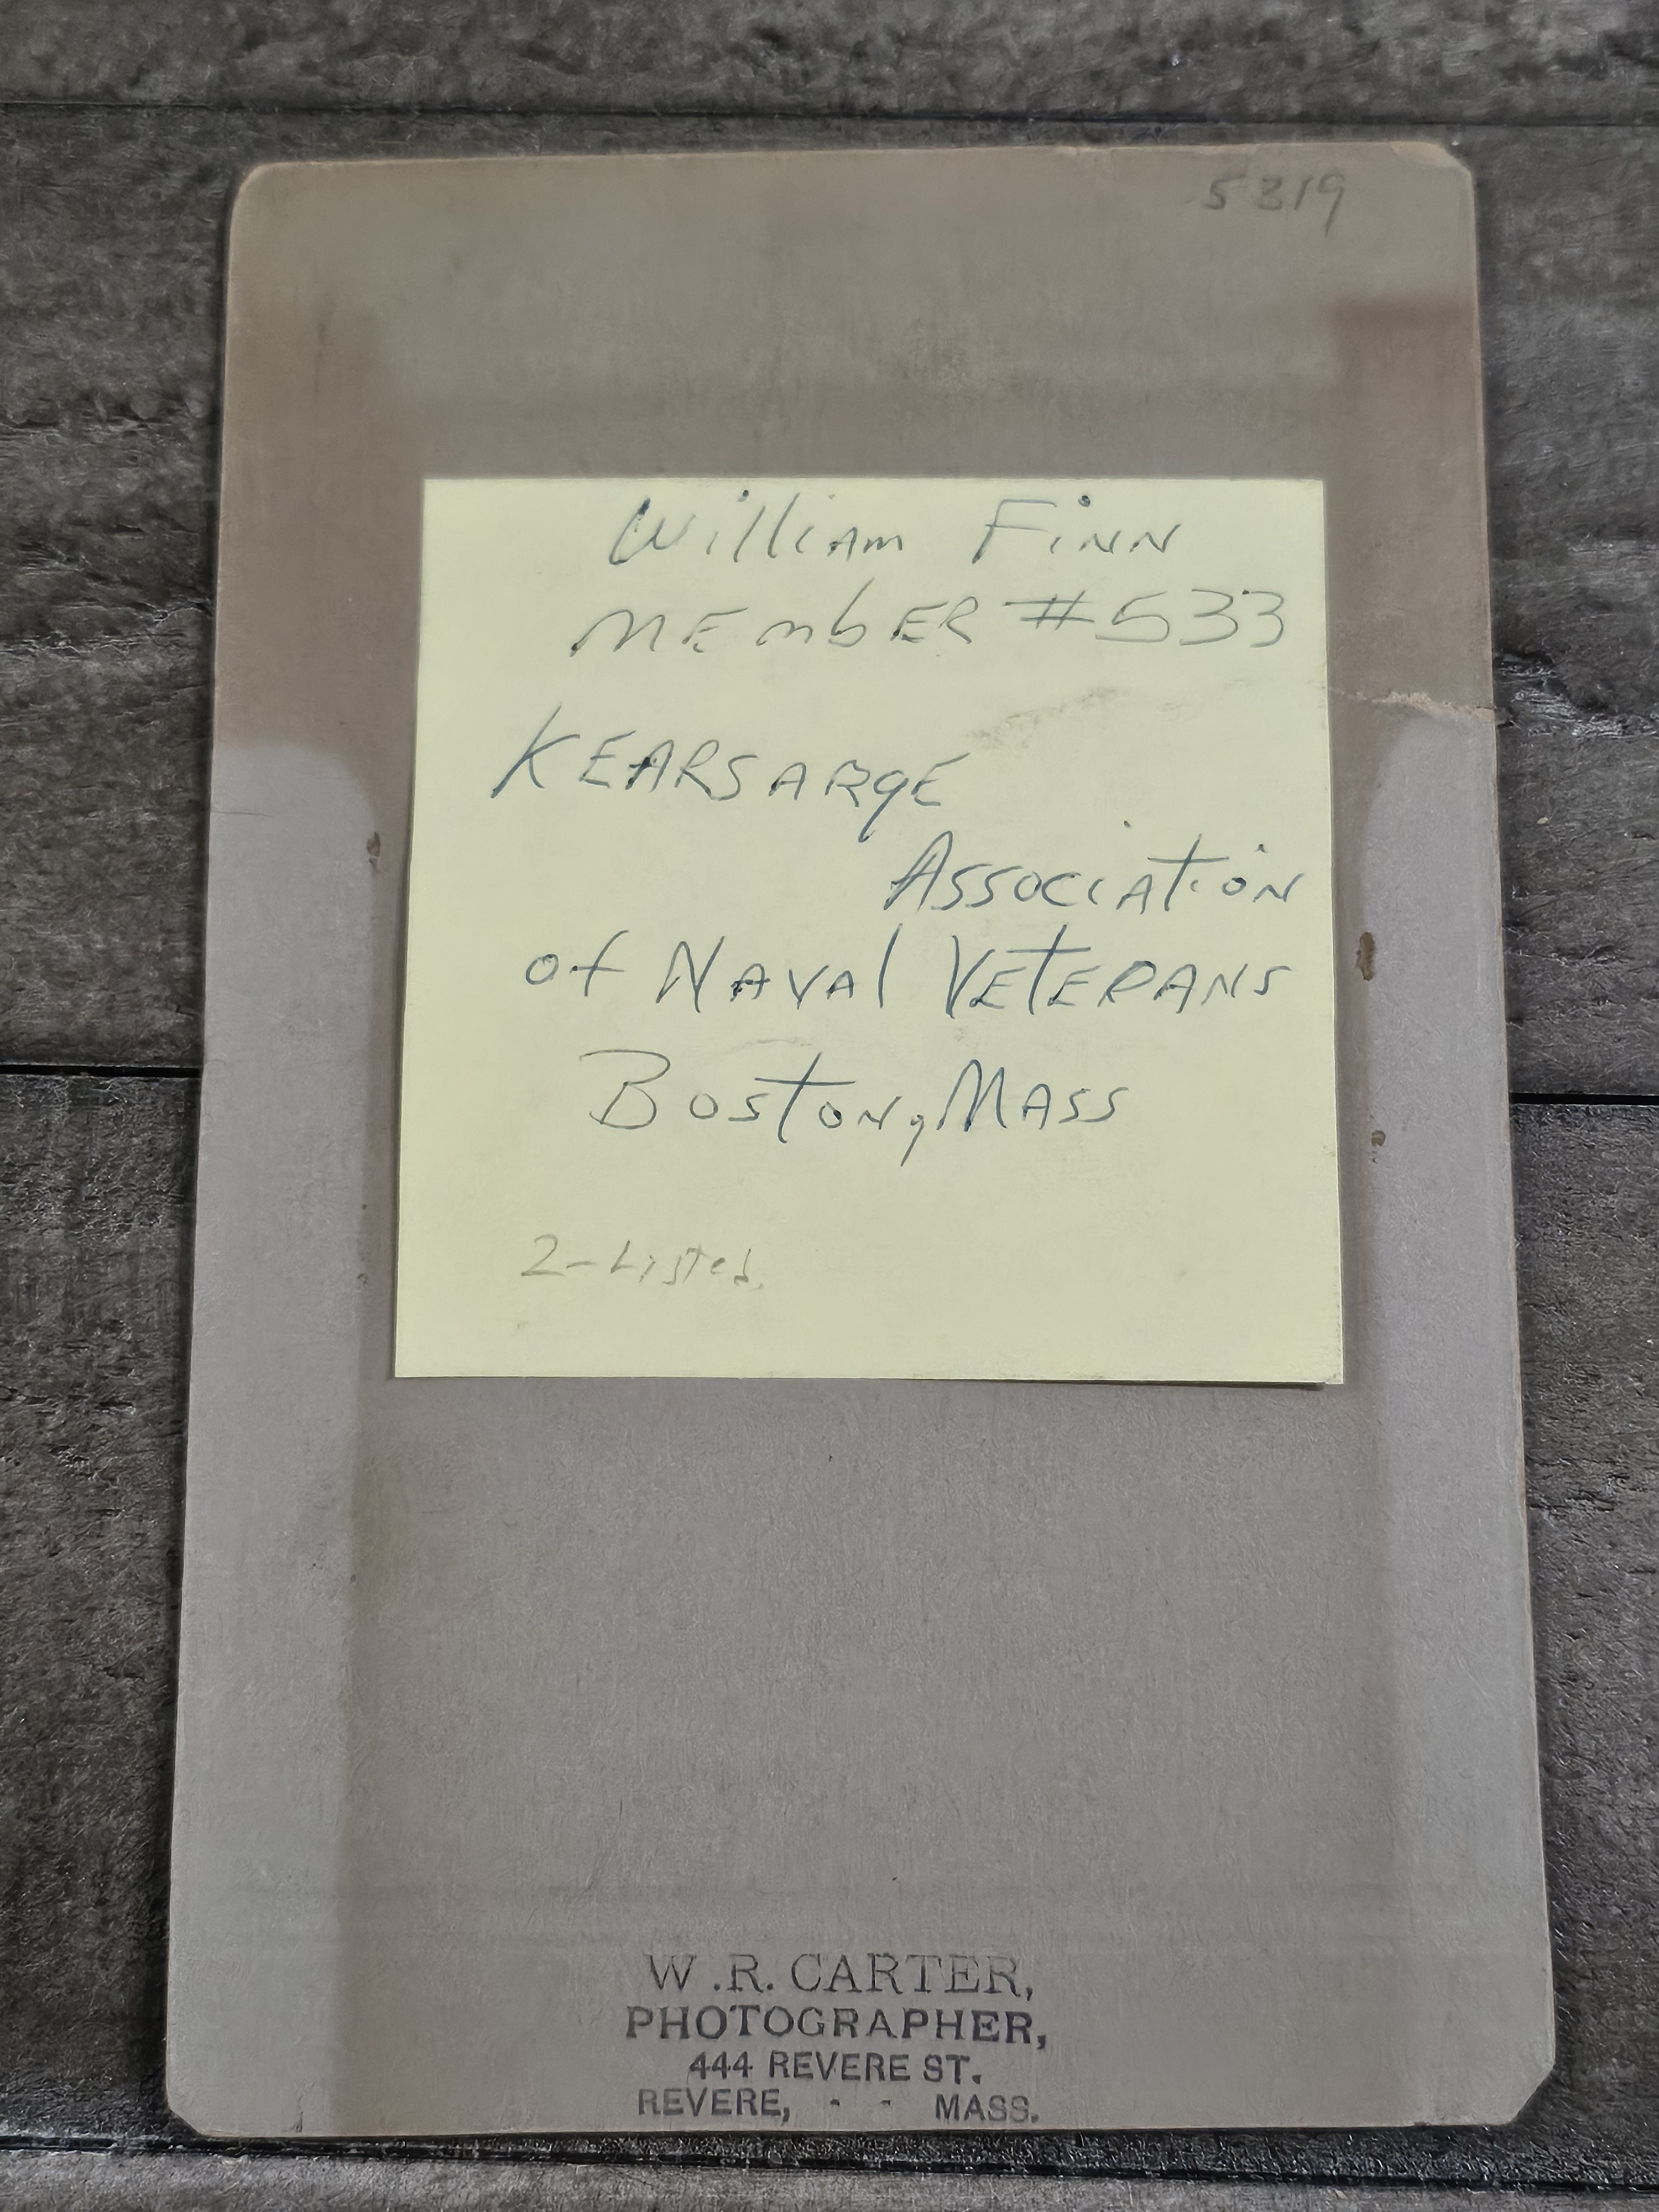 5319
William Finn
MEmbER #533
KEARSARgE
Association
of Naval VETERANS
Boston, Mass
2-Listed.
W.R. CARTER,
PHOTOGRAPHER,
444 REVERE ST.
REVERE, - - MASS.